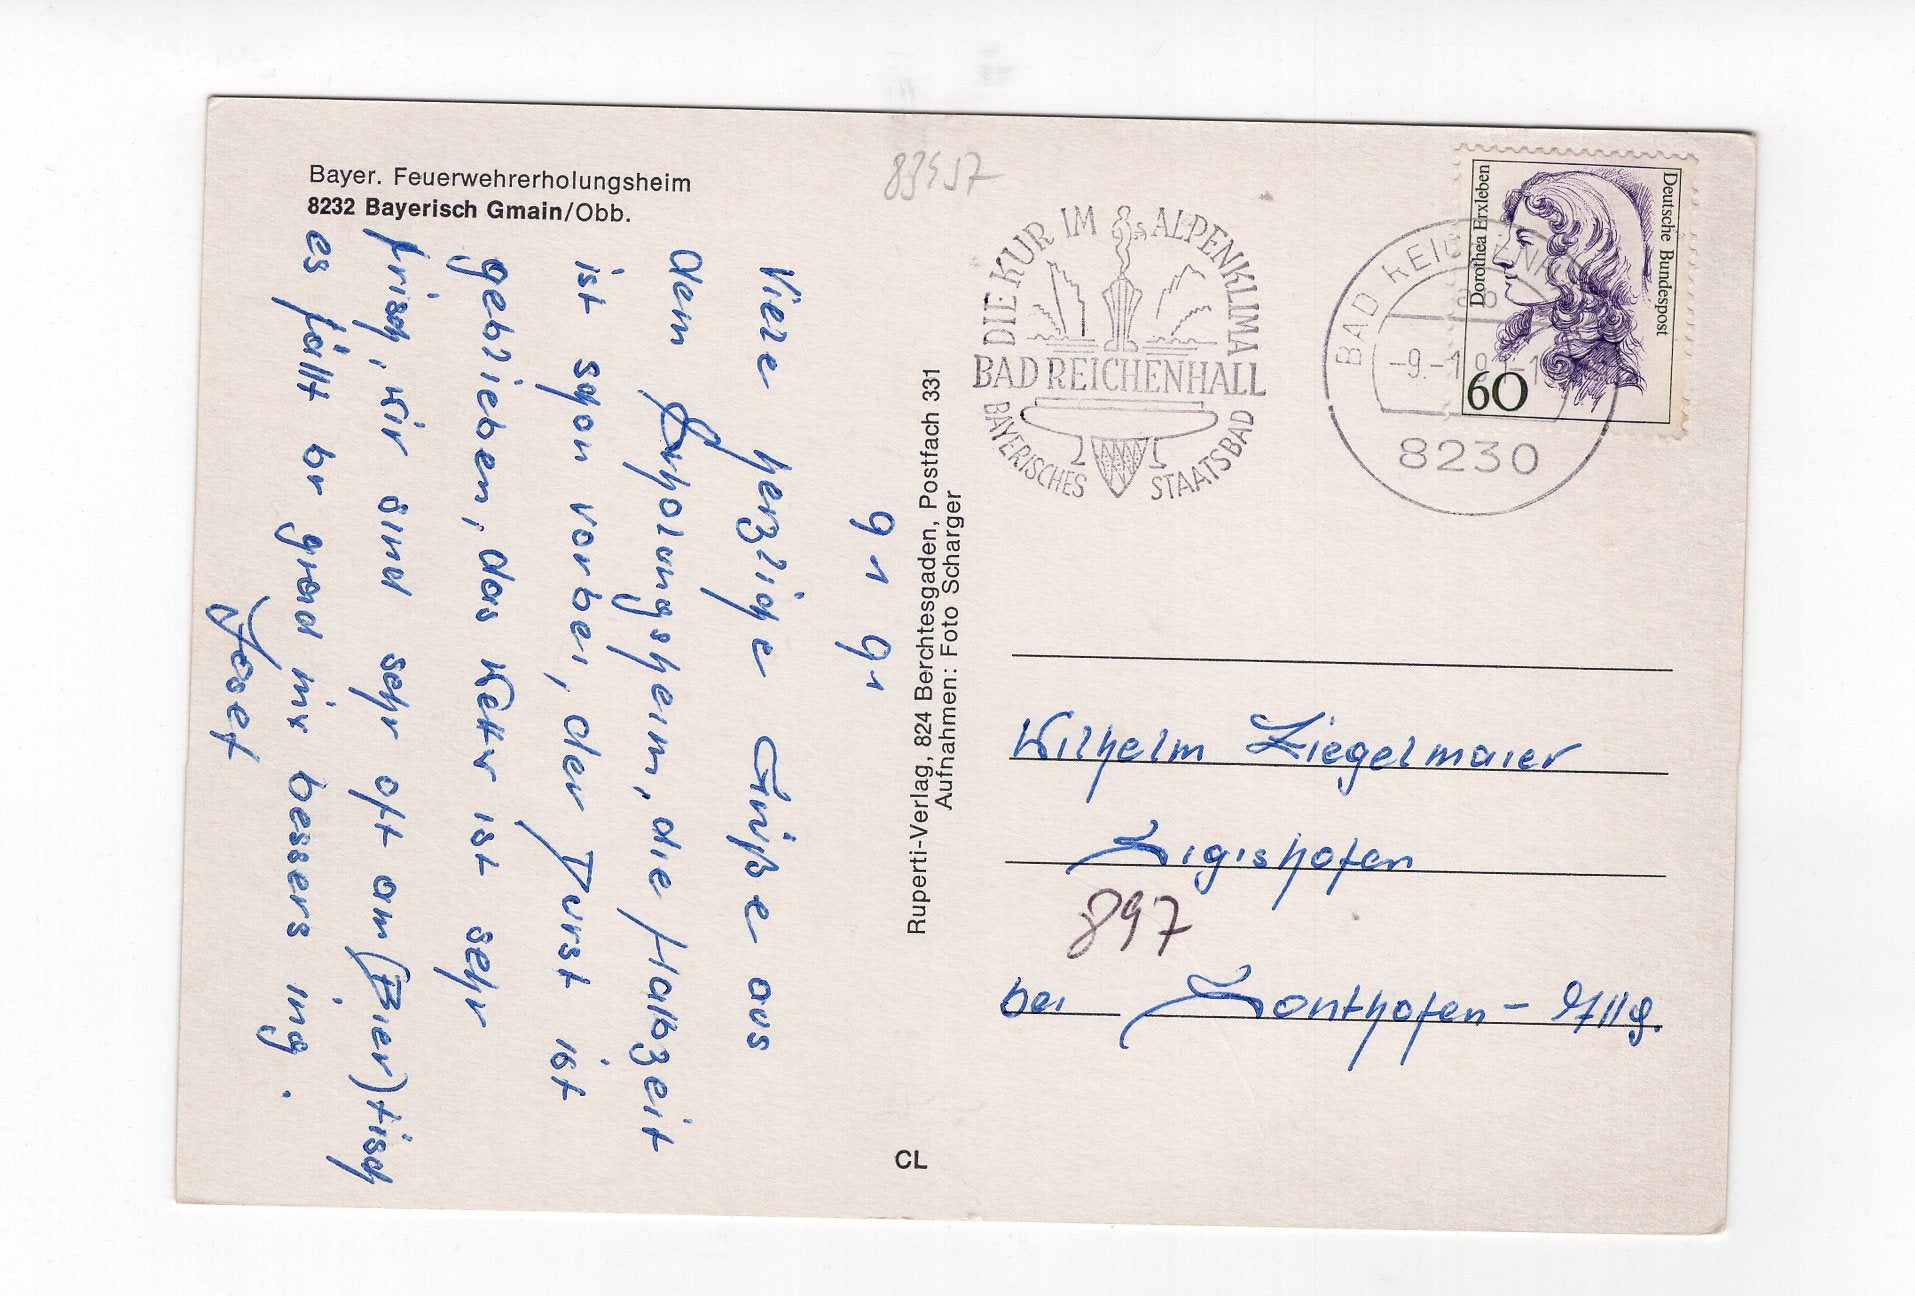 Bayer. Feuerwehrerholungsheim
8232 Bayerisch Gmain/Obb.
9 1 91
Viele herzliche Grüße aus
dem Erholungsheim, die Halbzeit
ist schon vorbei, der Durst ist
geblieben, das Wetter ist sehr
frisch, wir sind sehr oft am (Bier)tisch
es fällt br grad nix bessers ing.
Josef
Ruperti-Verlag, 824 Berchtesgaden, Postfach 331
Aufnahmen: Foto Scharger
CL
83457
DIE KUR IM ALPENKLIMA
BAD REICHENHALL
BAYERISCHES STAATSBAD
BAD REICHENHALL
8230
Deutsche Bundespost
Dorothea Erxleben
60
Wilhelm Ziegelmaier
Sigishofen
897
bei Sonthofen - Allg.